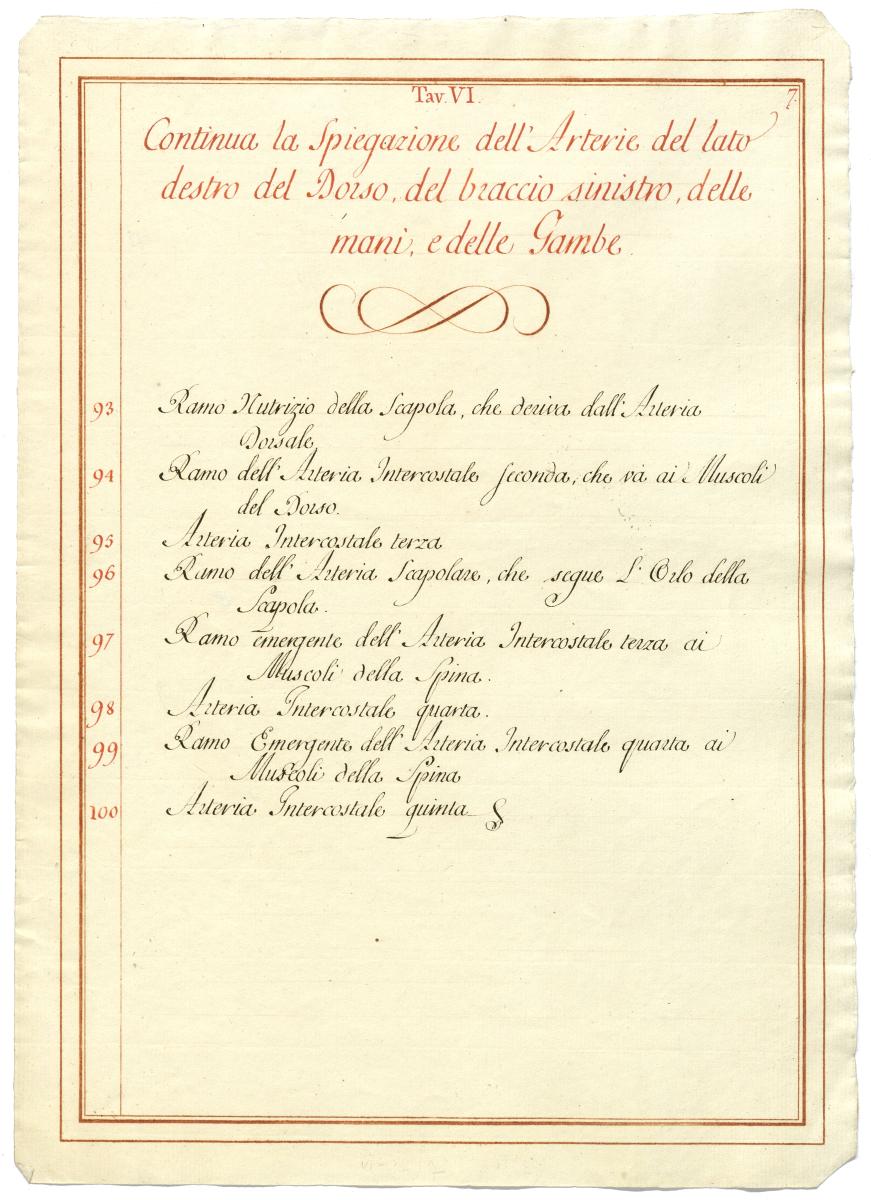 Tav. VI. 7.
Continua la Spiegazione dell'Arterie del lato
destro del Dorso, del braccio sinistro, delle
mani, e delle Gambe.
93 Ramo Nutrizio della Scapola, che deriva dall'Arteria
Dorsale
94 Ramo dell'Arteria Intercostale seconda, che và ai Muscoli
del Dorso.
95 Arteria Intercostale terza
96 Ramo dell'Arteria Scapolare, che segue L'Orlo della
Scapola.
97 Ramo emergente dell'Arteria Intercostale terza ai
Muscoli della Spina.
98 Arteria Intercostale quarta.
99 Ramo Emergente dell'Arteria Intercostale quarta ai
Muscoli della Spina
100 Arteria Intercostale quinta